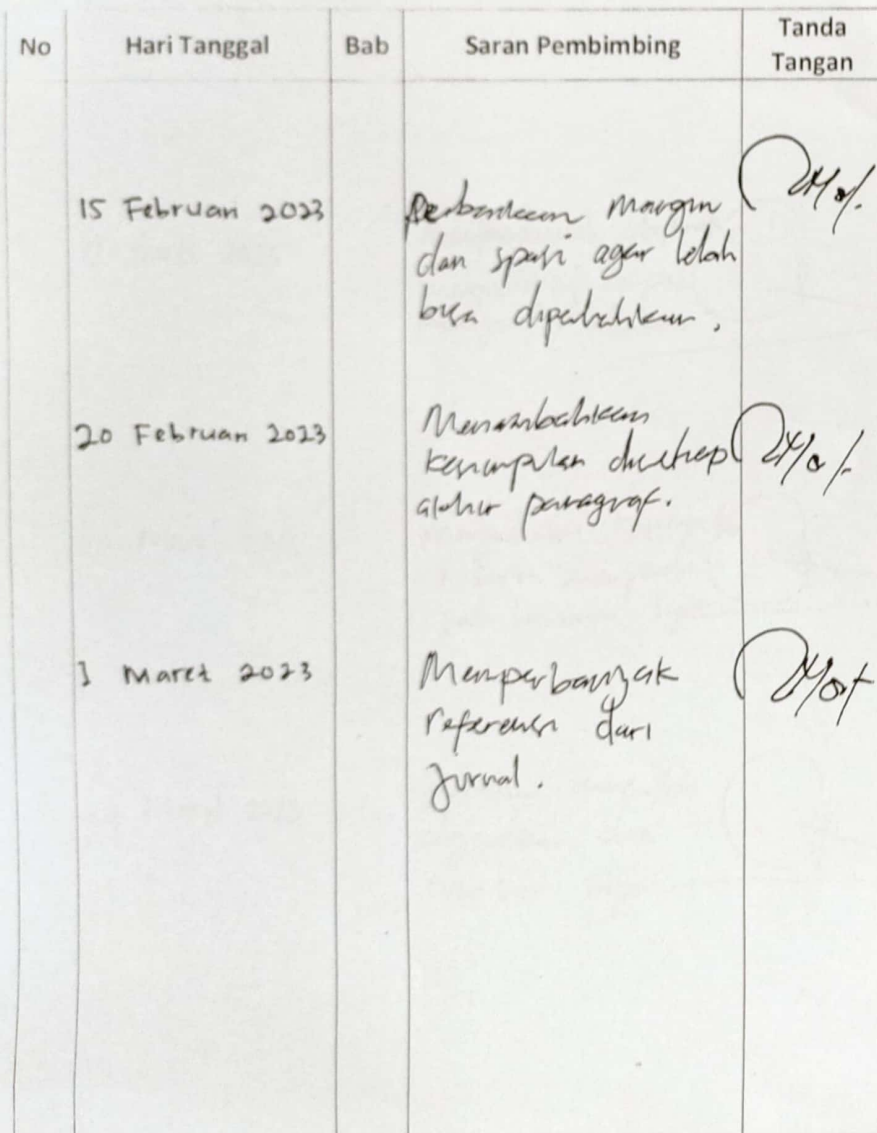 No Hari Tanggal Bab Saran Pembimbing Tanda Tangan
15 Februari 2023
Perbedaan margin
dan spasi agar lebih
bisa diperhatikan.
20 Februari 2023
Menambahkan
kesimpulan disetiap
akhir paragraf.
1 Maret 2023
Memperbanyak
referensi dari
jurnal.